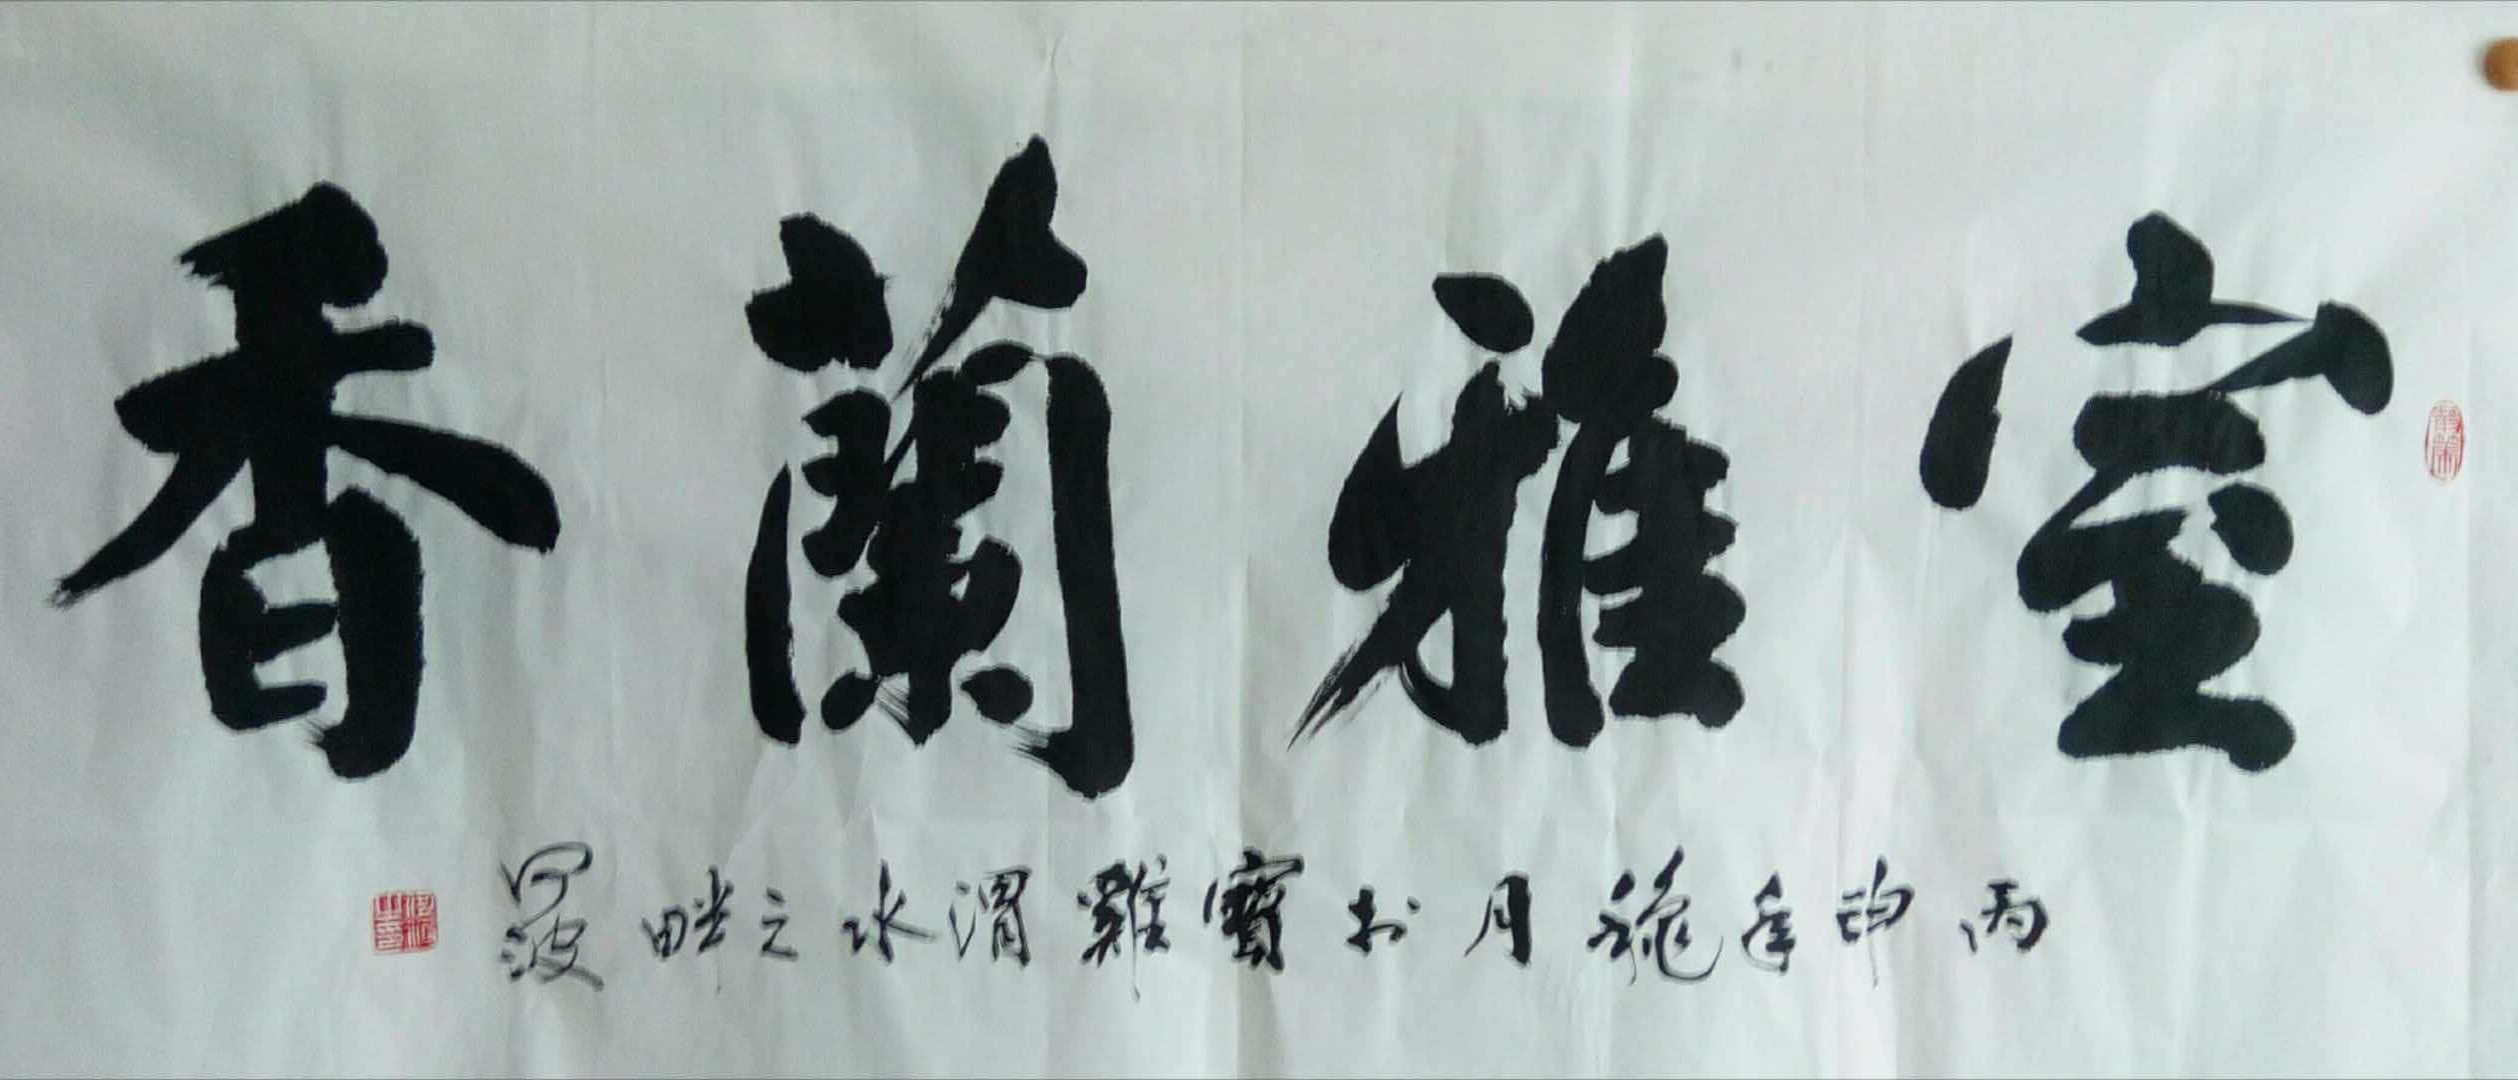 室雅蘭香
丙申年穐月於寶雞渭水之畔